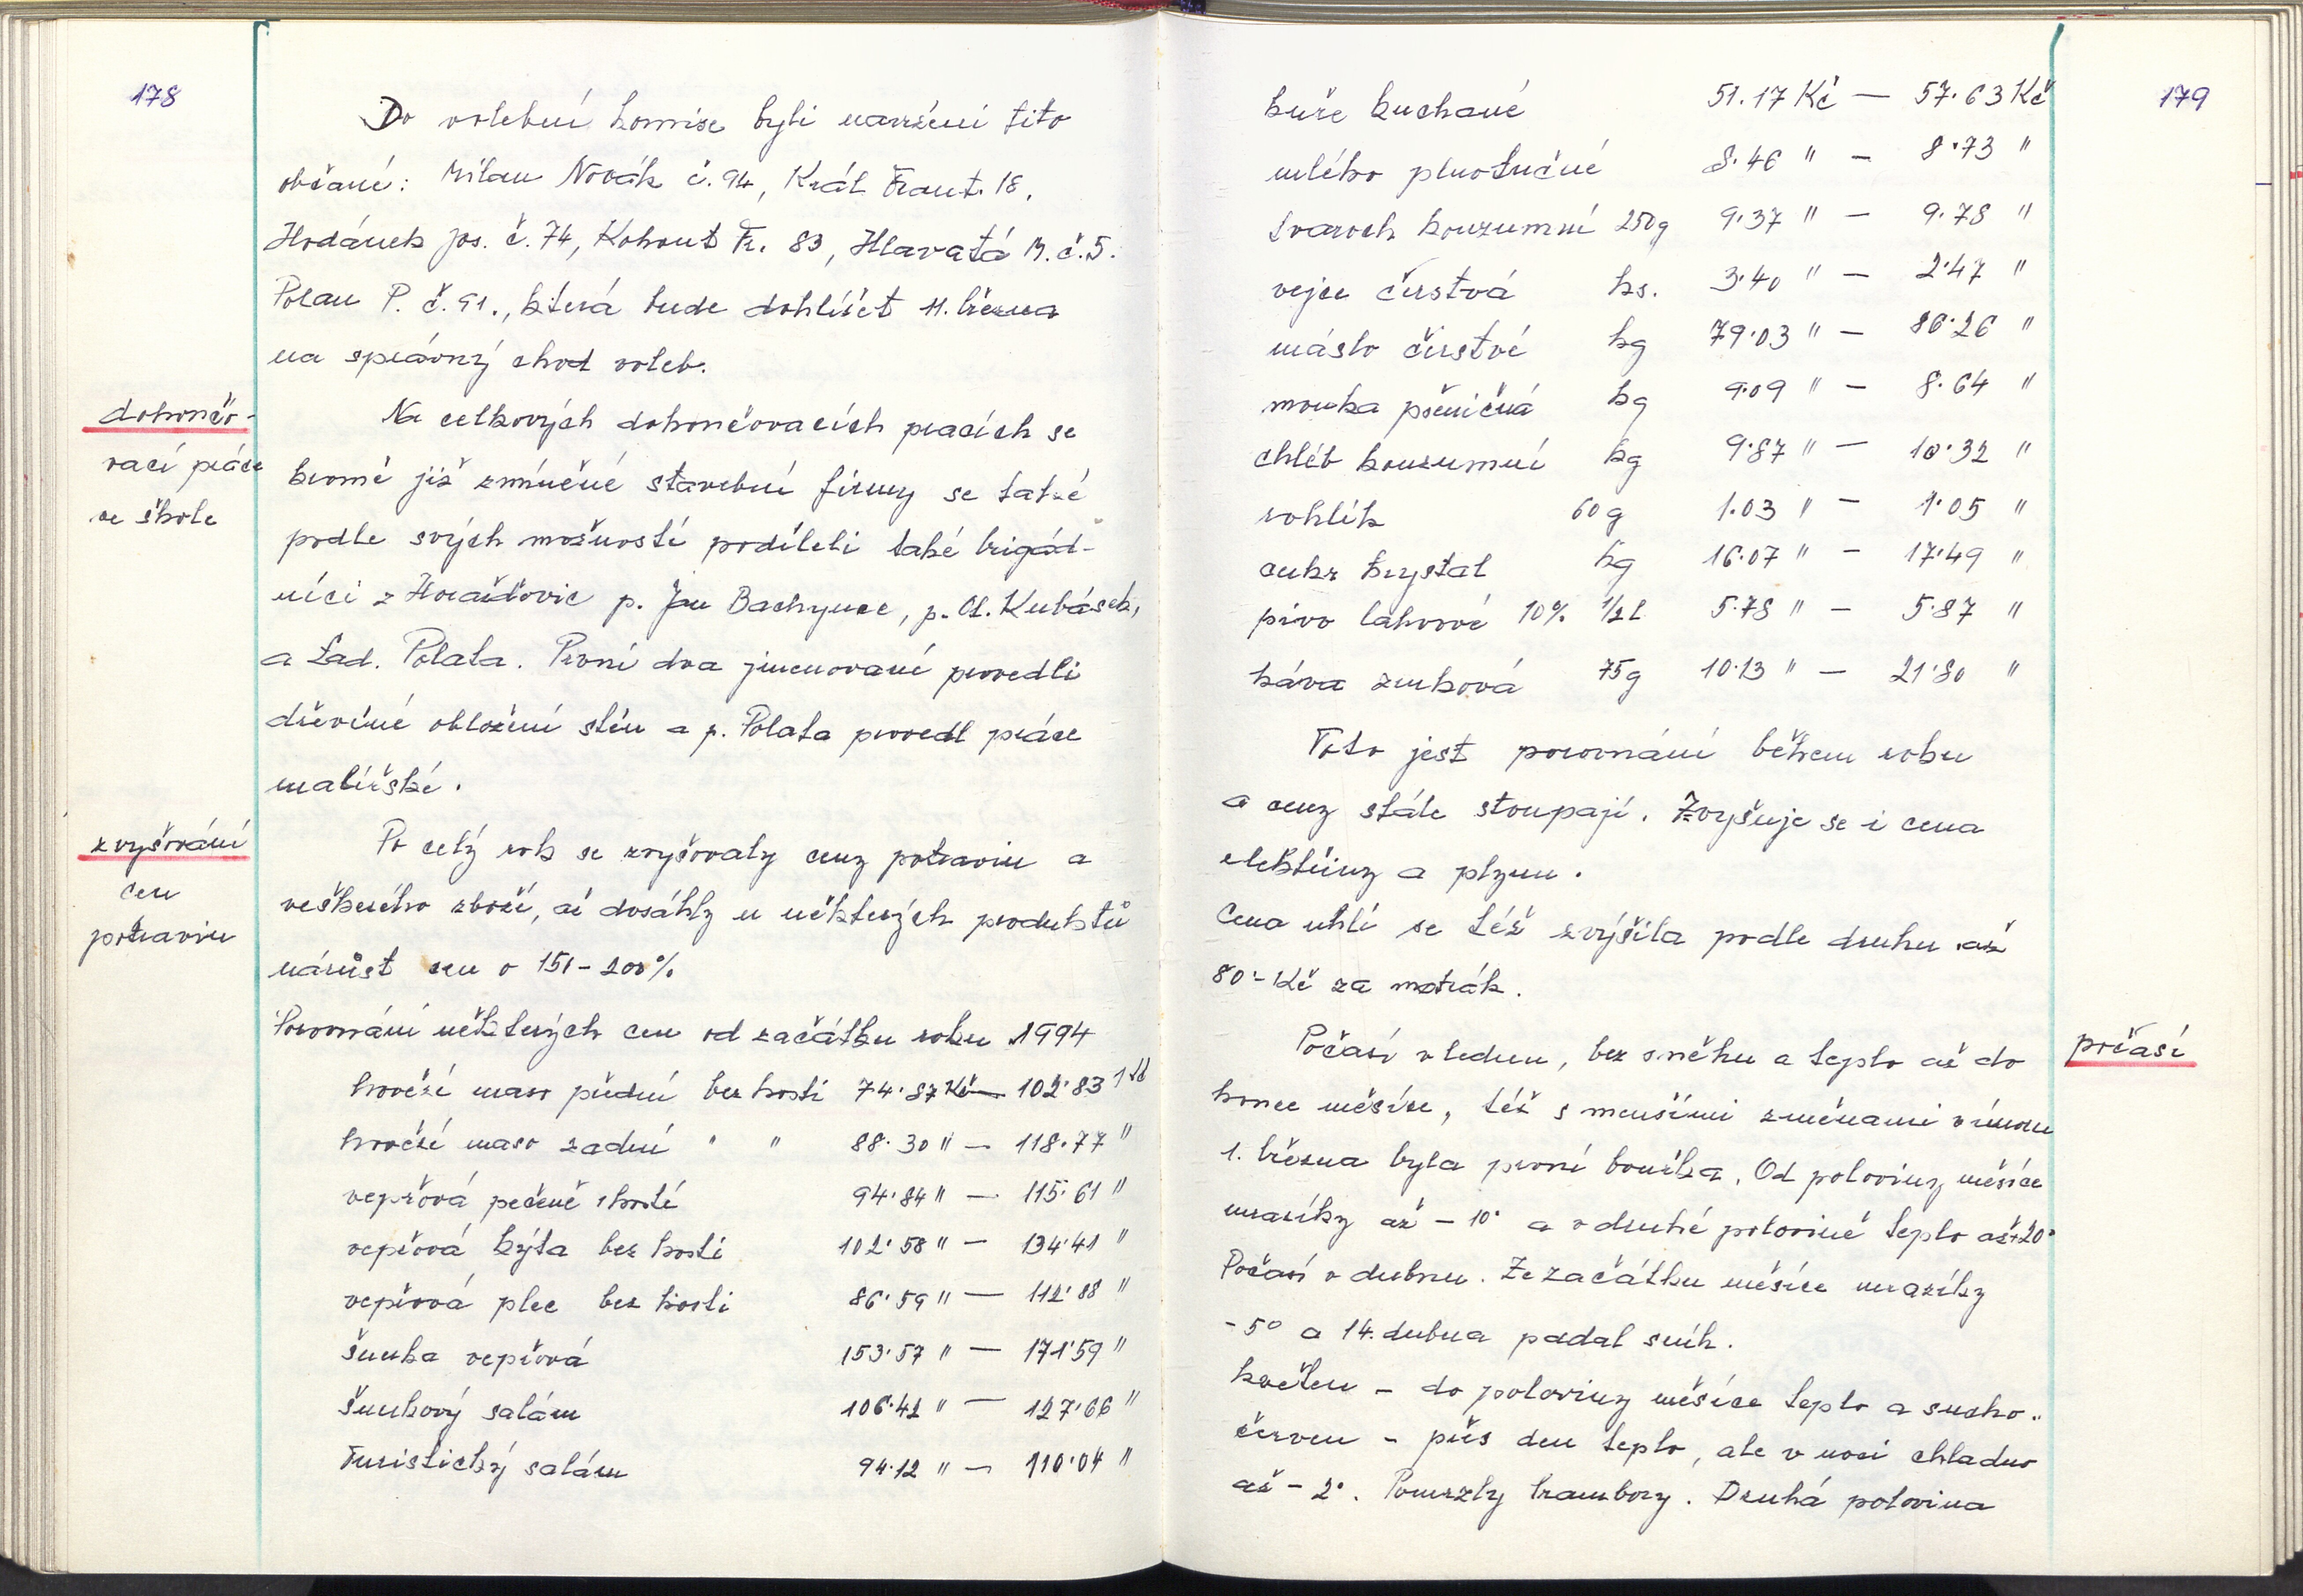 178
Do volební komise byli navrženi tito
občané: Milan Novák č. 94, Král Frant. 18,
Hodánek Jos. č. 74, Kohout Fr. 83, Hlavatá M. č. 5.
Polan P. č. 91., která bude dohlížet 11. března
na správný chod voleb.
dokončo-
vací práce
ve škole
Na celkových dokončovacích pracích se
kromě již zmíněné stavební firmy se také
podle svých možností podíleli také brigád-
níci z Horažďovic p. Jan Bachynec, p. Ol. Kubásek,
a Lad. Polata. První dva jmenovaní provedli
dřevěné obložení stěn a p. Polata provedl práce
malířské.
zvyšování
cen
potravin
Po celý rok se zvyšovaly ceny potravin a
veškerého zboží, až dosáhly u některých produktů
nárůst cen o 150-200%
Porovnání některých cen od začátku roku 1994
hovězí maso přední bez kosti 74·87 Kč — 102·83 Kč
hovězí maso zadní " " 88·30 " — 118·77 "
vepřová pečeně s kostí 94·84 " — 115·61 "
vepřová kýta bez kosti 102·58 " — 134·41 "
vepřová plec bez kosti 86·59 " — 112·88 "
šunka vepřová 153·57 " — 171·59 "
šunkový salám 106·42 " — 127·66 "
Turistický salám 94·12 " — 110·04 "
179
kuře kuchané 51·17 Kč — 57·63 Kč
mléko plnotučné 8·46 " — 8·73 "
tvaroh konzumní 250g 9·37 " — 9·78 "
vejce čerstvá ks. 3·40 " — 2·47 "
máslo čerstvé kg 79·03 " — 86·26 "
mouka pšeničná kg 9·09 " — 8·64 "
chléb konzumní kg 9·87 " — 10·32 "
rohlík 60g 1·03 " — 1·05 "
cukr krystal kg 16·07 " — 17·49 "
pivo lahvové 10% 1/2 l 5·78 " — 5·87 "
káva zrnková 75g 10·13 " — 21·80 "
Toto jest porovnání během roku
a ceny stále stoupají. Zvyšuje se i cena
elektřiny a plynu.
Cena uhlí se též zvýšila podle druhu až
80·- Kč za metrák.
počasí
Počasí v lednu, bez sněhu a teplo až do
konce měsíce, též s menšími změnami v únoru
1. března byla první bouřka. Od poloviny měsíce
mrazíky až -10° a v druhé polovině teplo až +20°
Počasí v dubnu. Ze začátku měsíce mrazíky
-5° a 14. dubna padal sníh.
květen - do poloviny měsíce teplo a sucho.
červen - přes den teplo, ale v noci chladno
až -2°. Pomrzly brambory. Druhá polovina